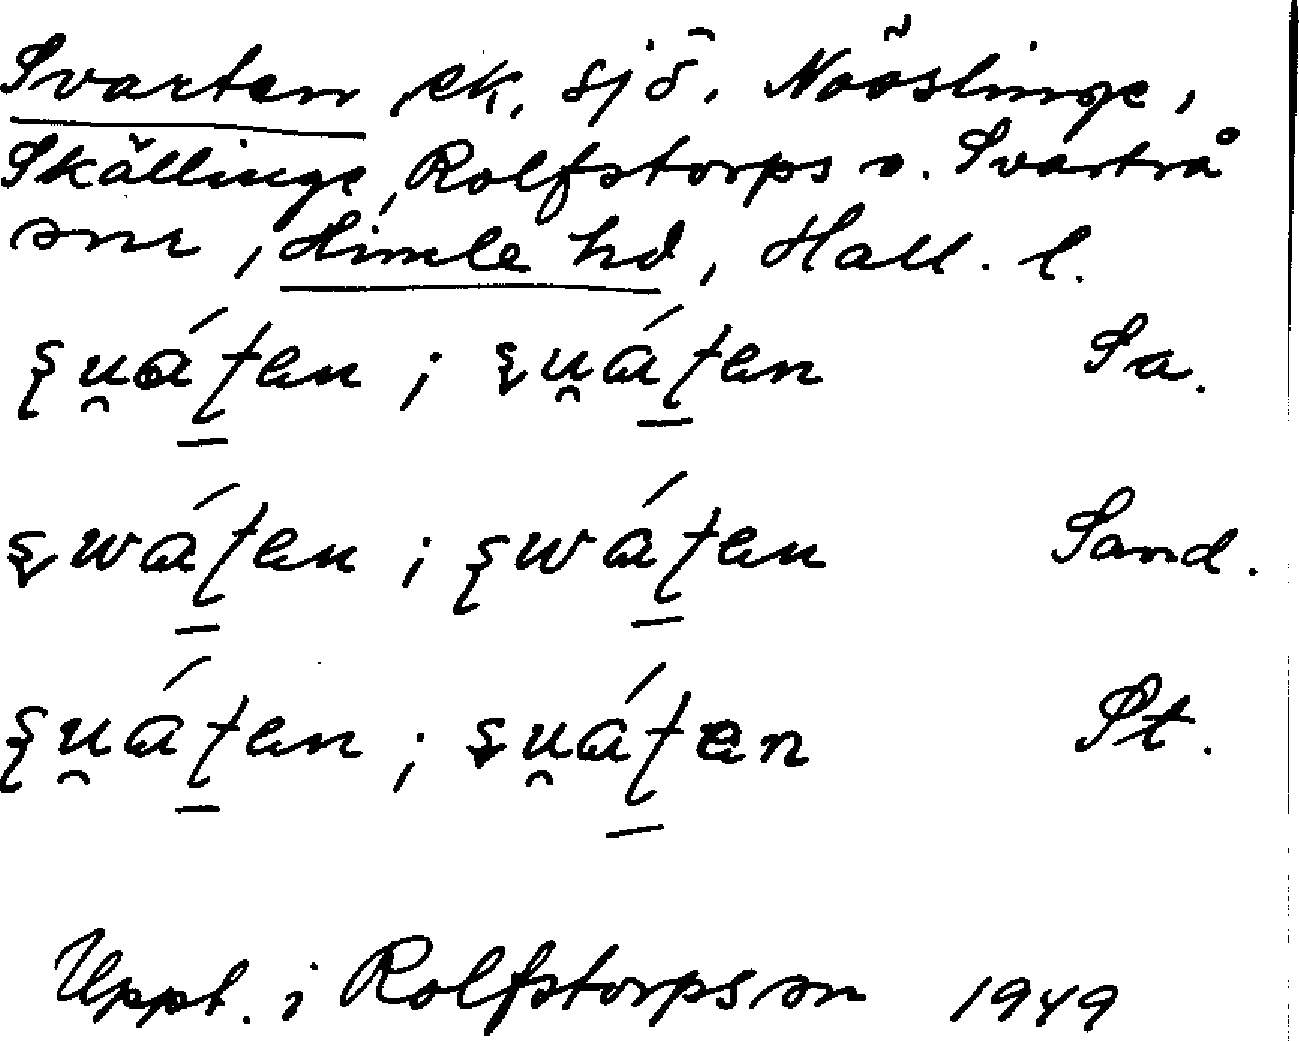 Svarten, ek. sjö. Nösslinge,
Skällinge, Rolfstorps o. Svartrå
snr, Himle hd, Hall. l.
ʂu̯áʈen ; ʂu̯áʈen Sa.
ʂwáʈen ; ʂwáʈen Sand.
ʂu̯áʈen ; ʂu̯áʈen St.
Uppt. i Rolfstorps sn 1949